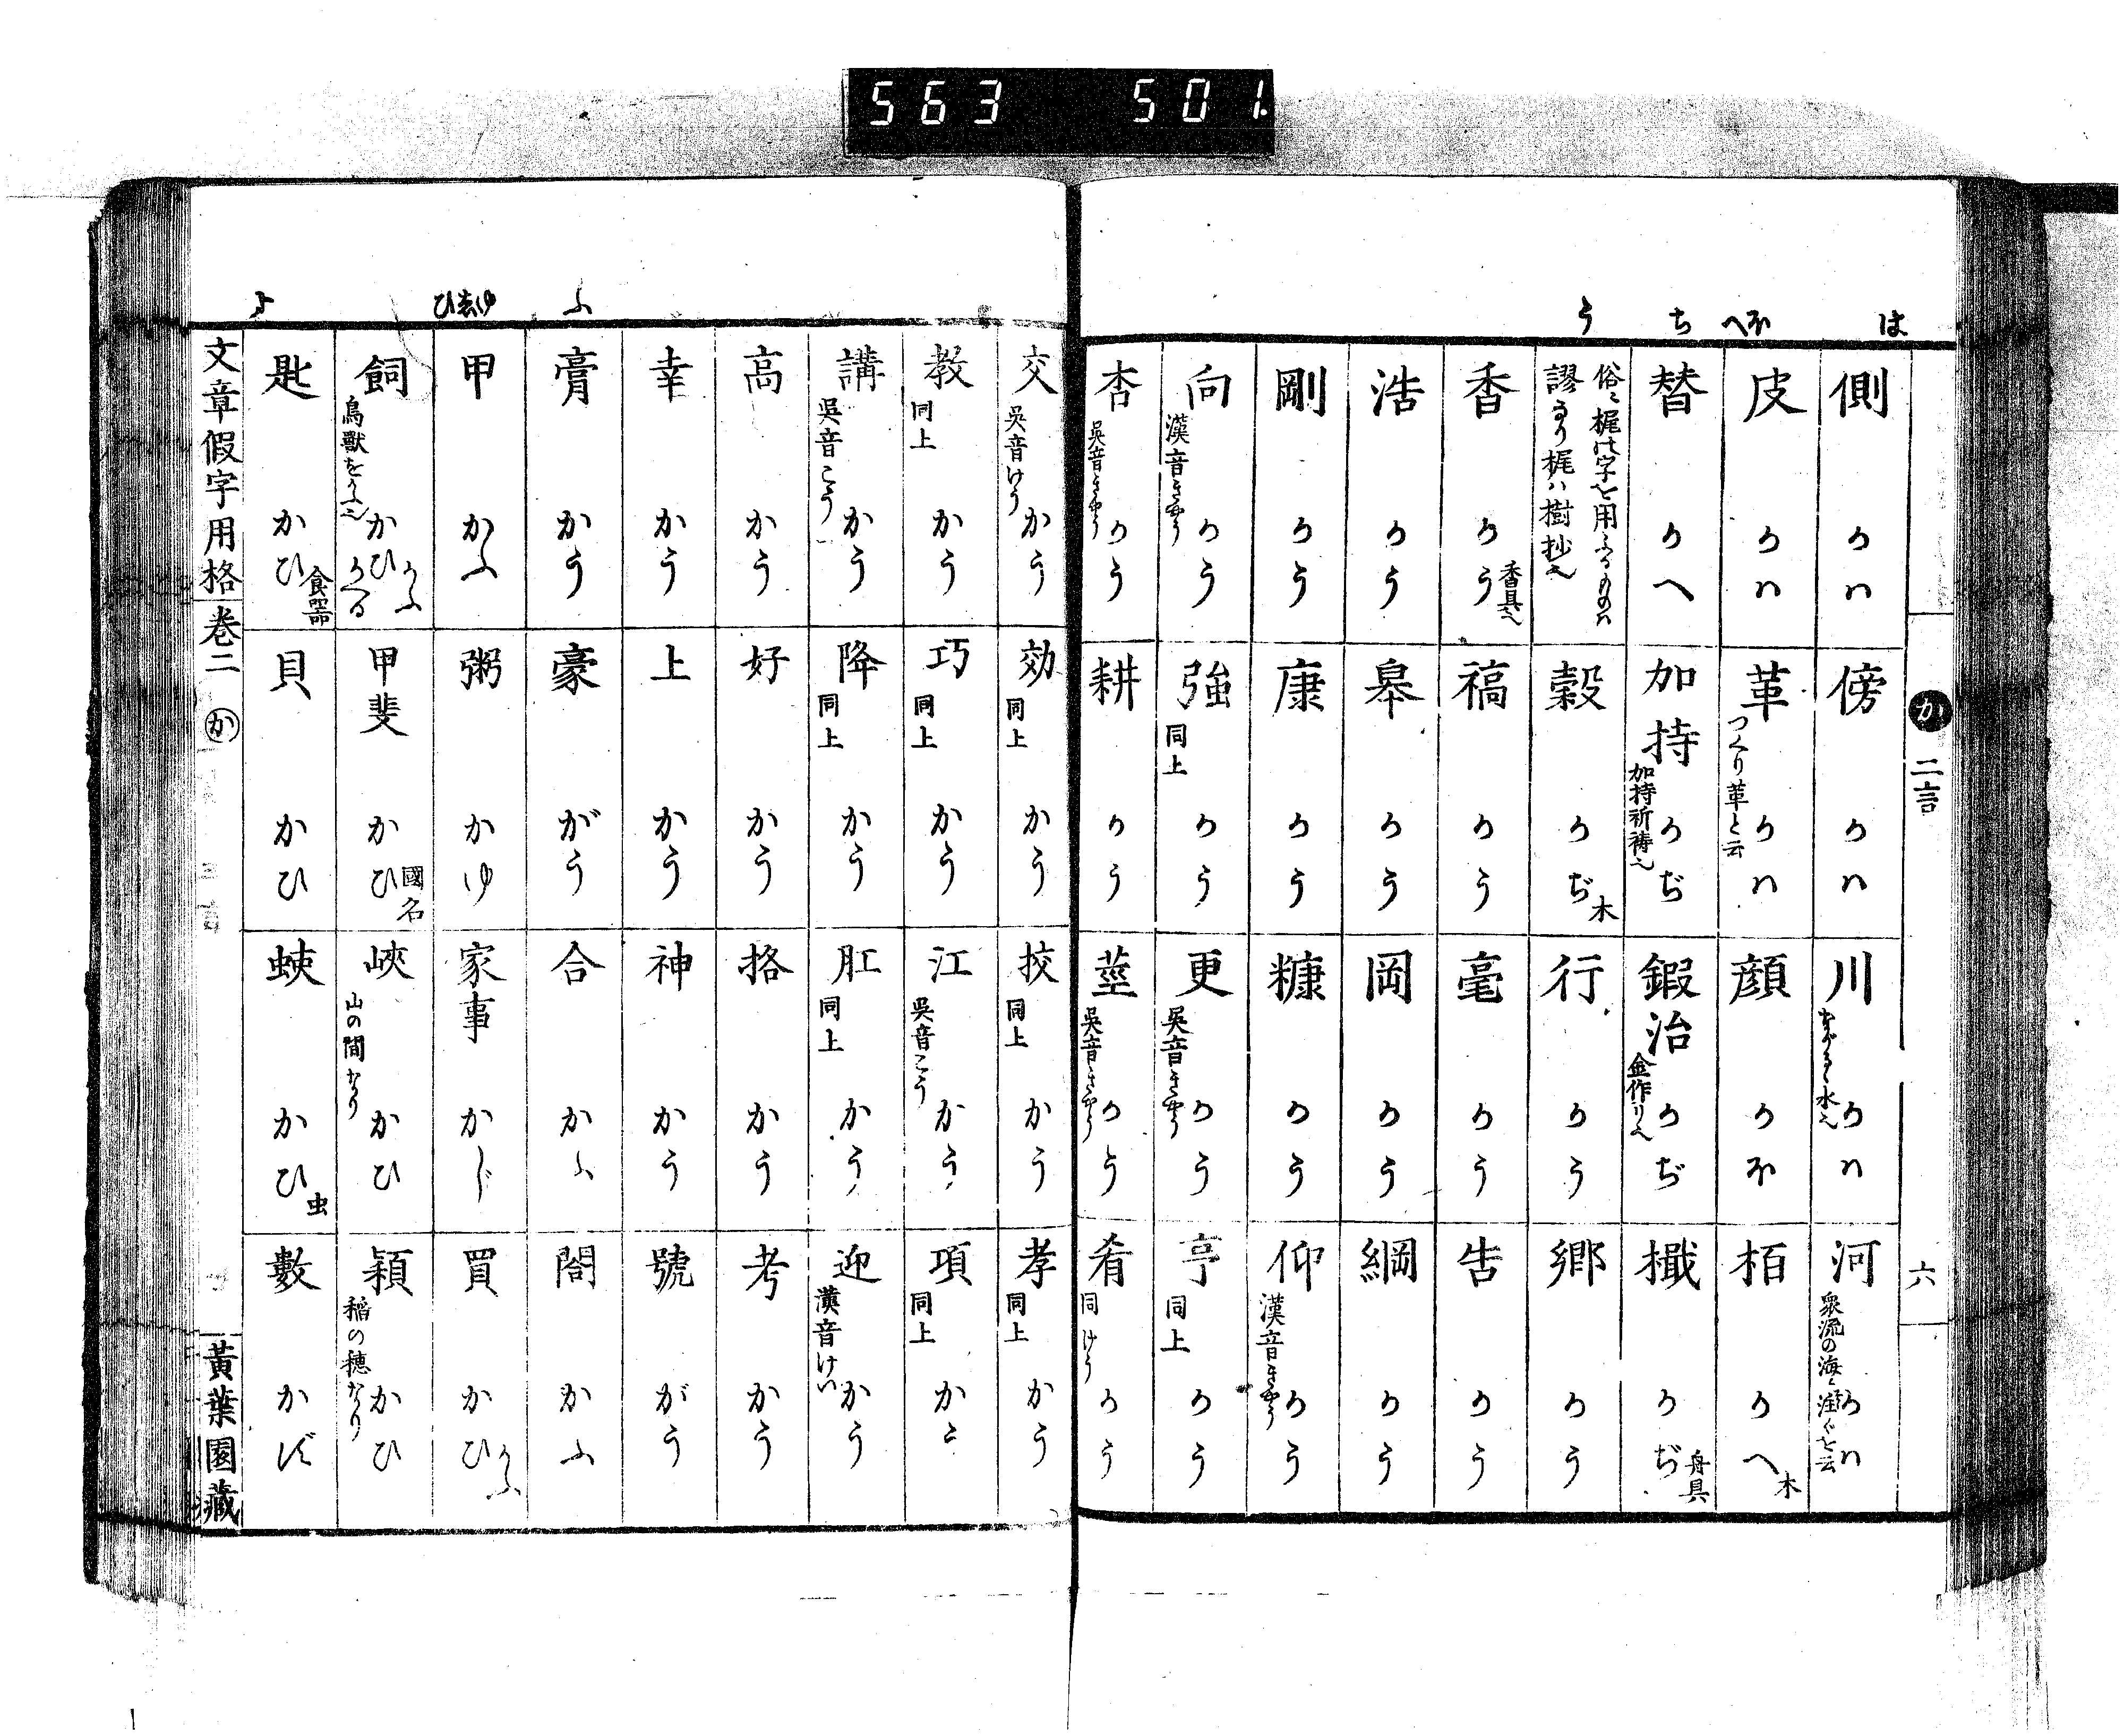 563 501
は
ほへ
ち
う
か 二言 六
側 かハ
傍 かハ
川 かハ ながるゝ水也
河 かハ 衆流の海に注ぐを云
皮 かハ
革 かハ つくり革と云
顔 かほ
栢 かへ 木
替 かへ
加持 かぢ 加持祈祷也
鍛冶 かぢ 金作り也
檝 かぢ 舟具
俗に梶の字を用ふるものハ
謬なり梶ハ樹抄也
穀 かぢ 木
行 かう
郷 かう
香 かう 香具也
稿 かう
毫 かう
告 かう
浩 かう
皋 かう
岡 かう
綱 かう
剛 かう
康 かう
糠 かう
仰 かう 漢音きやう
向 かう 漢音きやう
強 かう 同上
更 かう 呉音きやう
亨 かう 同上
杏 かう 呉音きやう
耕 かう
莖 かう 呉音きやう
肴 かう 同けう
ふ
ひじゆ
交 かう 呉音けう
効 かう 同上
挍 かう 同上
孝 かう 同上
教 かう 同上
巧 かう 同上
江 かう 呉音こう
項 かう 同上
講 かう 呉音こう
降 かう 同上
肛 かう 同上
迎 かう 漢音けい
高 かう
好 かう
挌 かう
考 かう
幸 かう
上 かう
神 かう
號 がう
膏 かう
豪 がう
合 かふ
閤 かふ
甲 かふ
粥 かゆ
家事 かじ
買 かひ かふ
飼 かひ かふ かへる 鳥獣をかふ也
甲斐 かひ 國名
峽 かひ 山の間なり
穎 かひ 稲の穂なり
匙 かひ 食器
貝 かひ
蛺 かひ 虫
數 かず
文章假字用格 巻二 か
黄葉園藏